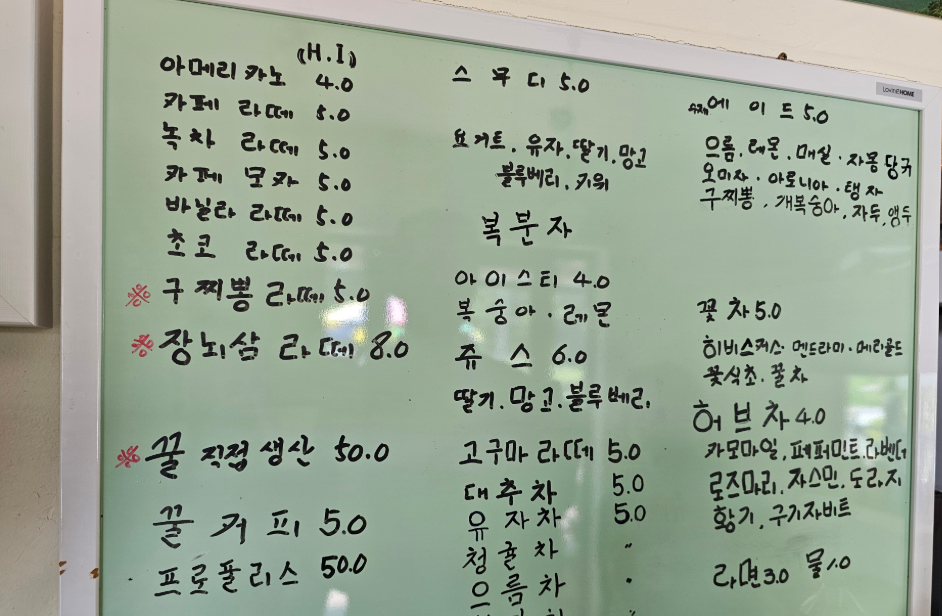 (H.I)
아메리카노 4.0
카페 라떼 5.0
녹차 라떼 5.0
카페 모카 5.0
바닐라 라떼 5.0
초코 라떼 5.0
※ 구찌뽕 라떼 5.0
※ 장뇌삼 라떼 8.0
※ 꿀 직접 생산 50.0
꿀 커피 5.0
프로폴리스 50.0
스무디 5.0
요거트, 유자, 딸기, 망고
블루베리, 키위
복분자
아이스티 4.0
복숭아 · 레몬
쥬스 6.0
딸기, 망고, 블루베리,
고구마 라떼 5.0
대추차 5.0
유자차 5.0
청귤차 〃
으름차 〃
LovineHOME
수제 에이드 5.0
으름, 레몬, 매실 · 자몽 당규
오미자 · 아로니아 · 탱자
구찌뽕, 개복숭아, 자두, 앵두
꽃차 5.0
히비스커스 · 멘드라미 · 메리골드
꽃식초 · 꿀차
허브차 4.0
카모마일, 페퍼민트, 라벤더
로즈마리, 자스민, 도라지
황기, 구기자비트
라면 3.0 물 1.0